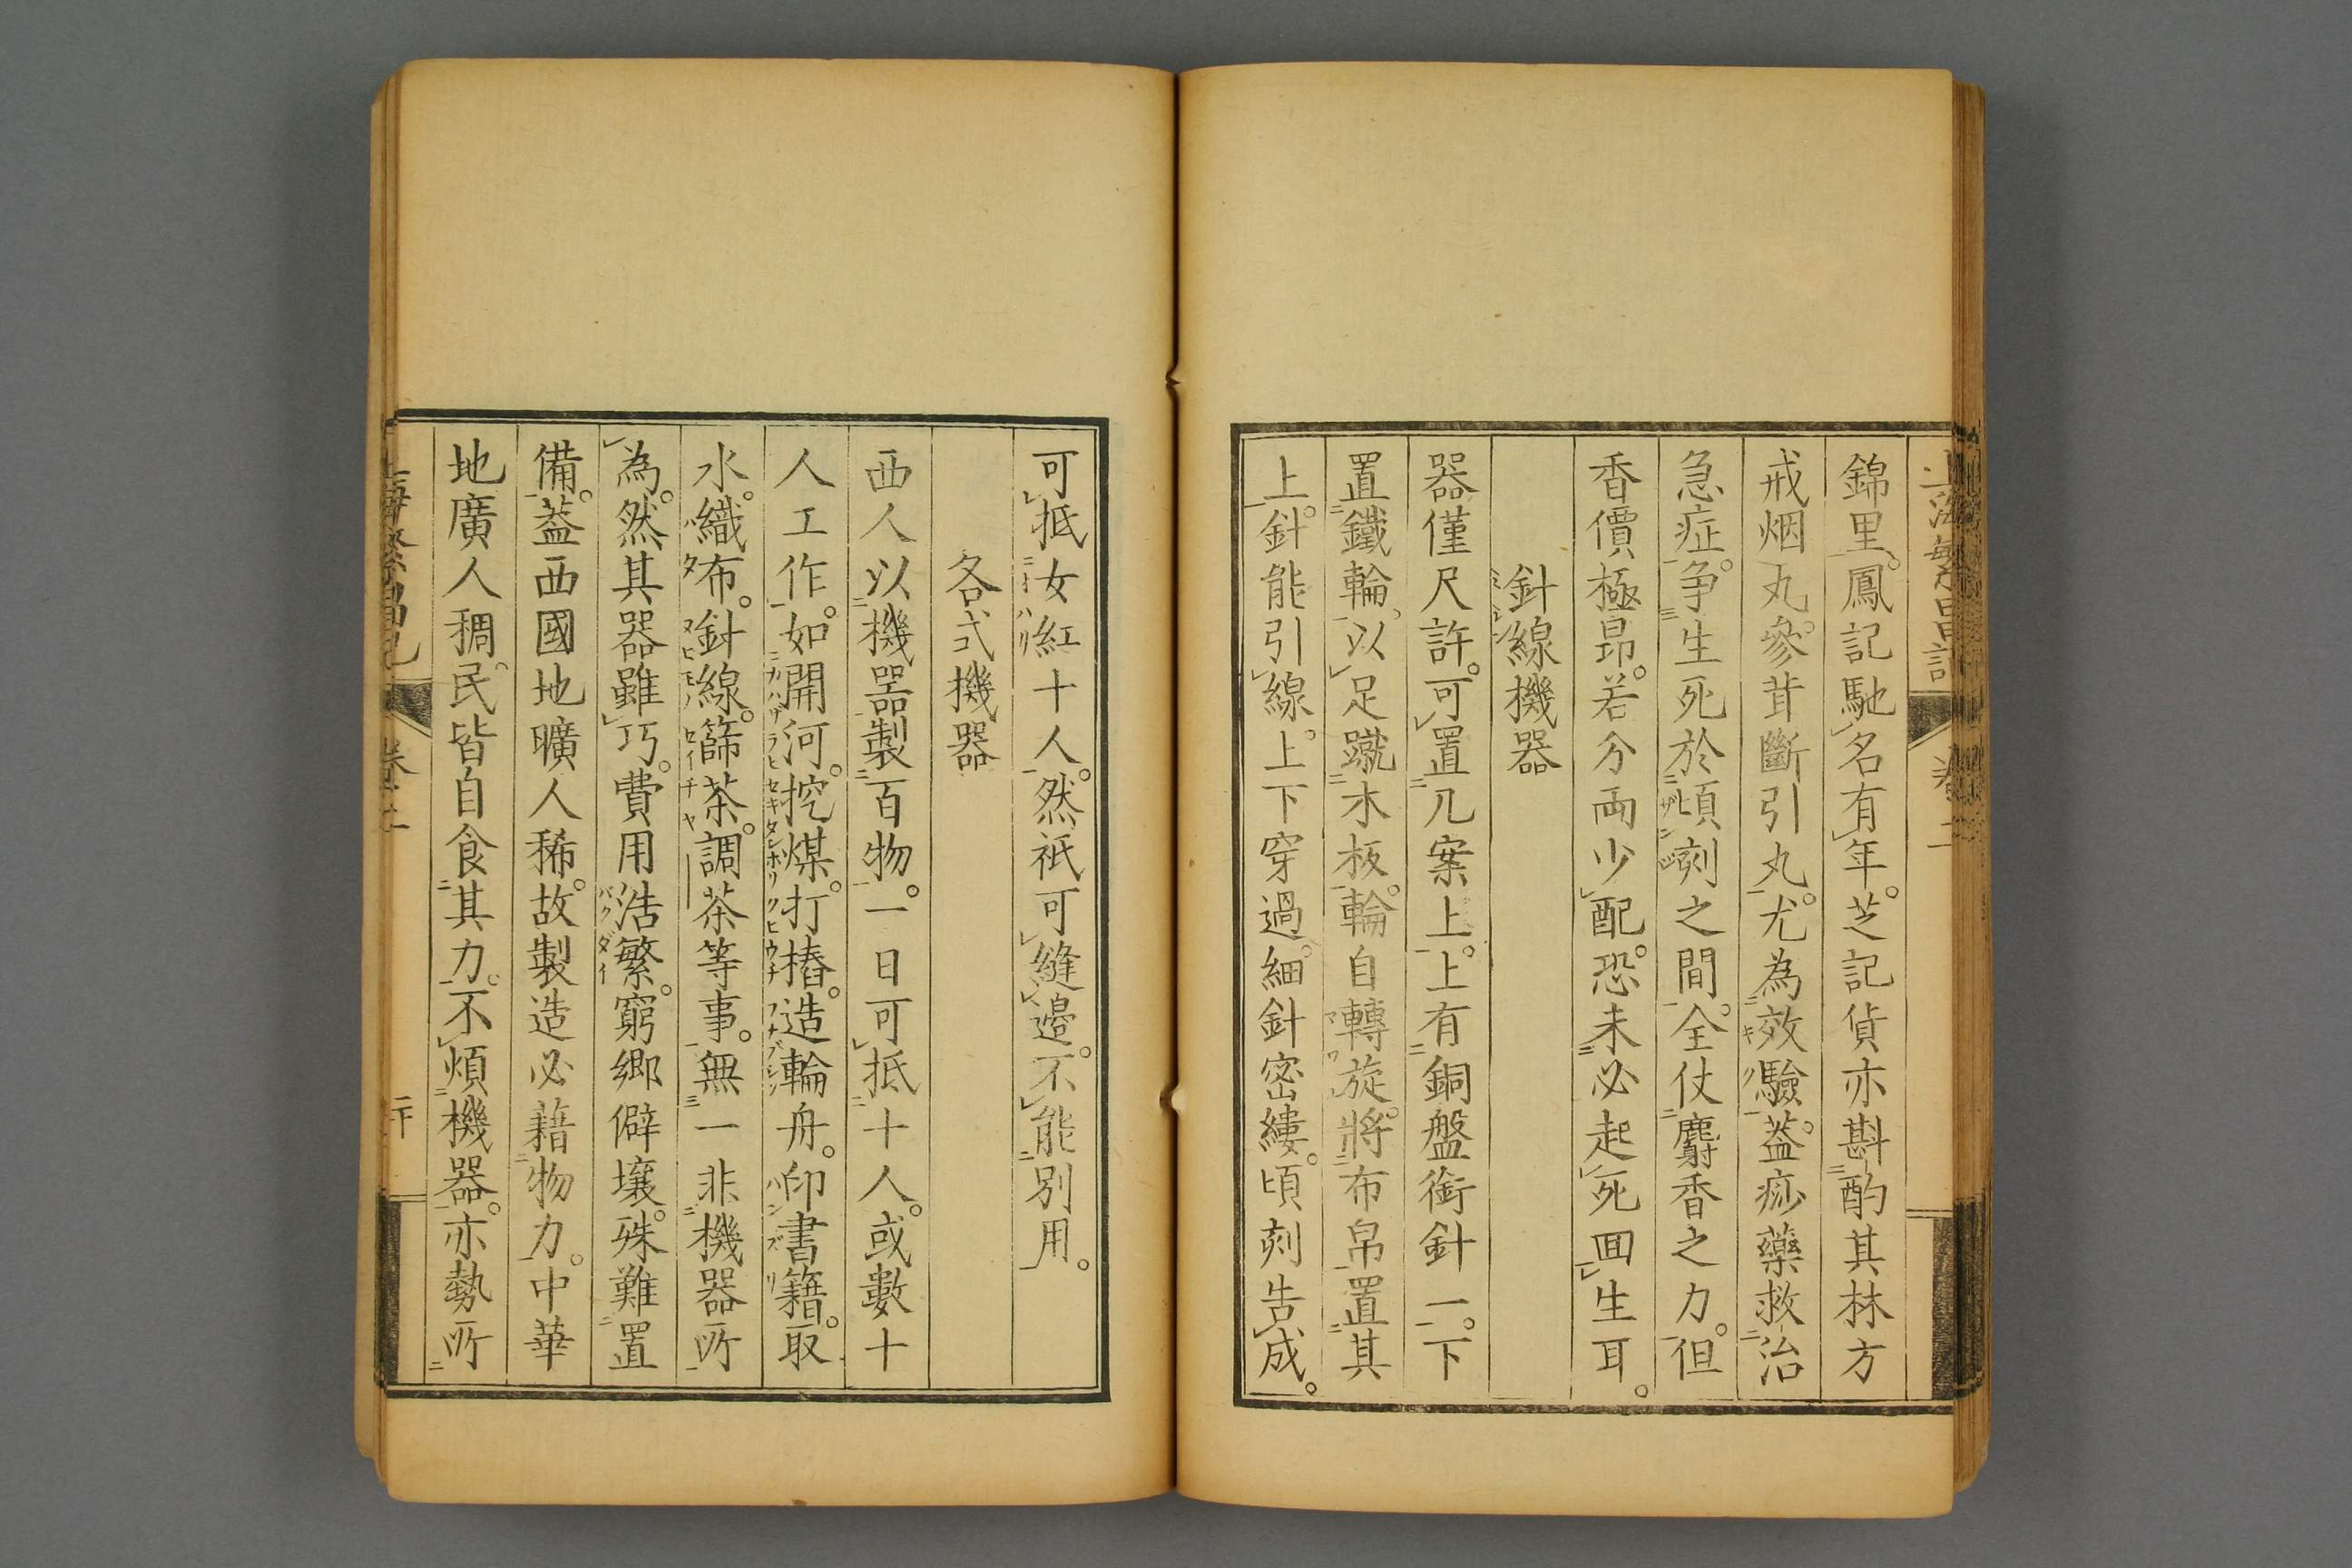 上海繁昌記 卷二
錦里。鳳記馳名有年。芝記貨亦斟酌其林方
戒烟丸。參茸斷引丸。尤為效驗。蓋痧藥救治
急症。争生死於頃刻之間。全仗麝香之力。但
香價極昂。若分兩少配。恐未必起死回生耳。
針線機器
器僅尺許。可置几案上。上有銅盤銜針一。下
置鐵輪。以足蹴木板。輪自轉旋。將布帛置其
上。針能引線。上下穿過。細針密縷。頃刻告成。
可抵女紅十人。然祇可縫邊。不能別用。
各式機器
西人以機器製百物。一日可抵十人。或數十
人工作。如開河。挖煤。打樁。造輪舟。印書籍。取
水。織布。針線。篩茶。調茶等事。無一非機器所
為。然其器雖巧。費用浩繁。窮鄉僻壤。殊難置
備。蓋西國地曠人稀。故製造必藉物力。中華
地廣人稠。民皆自食其力。不煩機器。亦勢所
上海繁昌記 卷二 二十